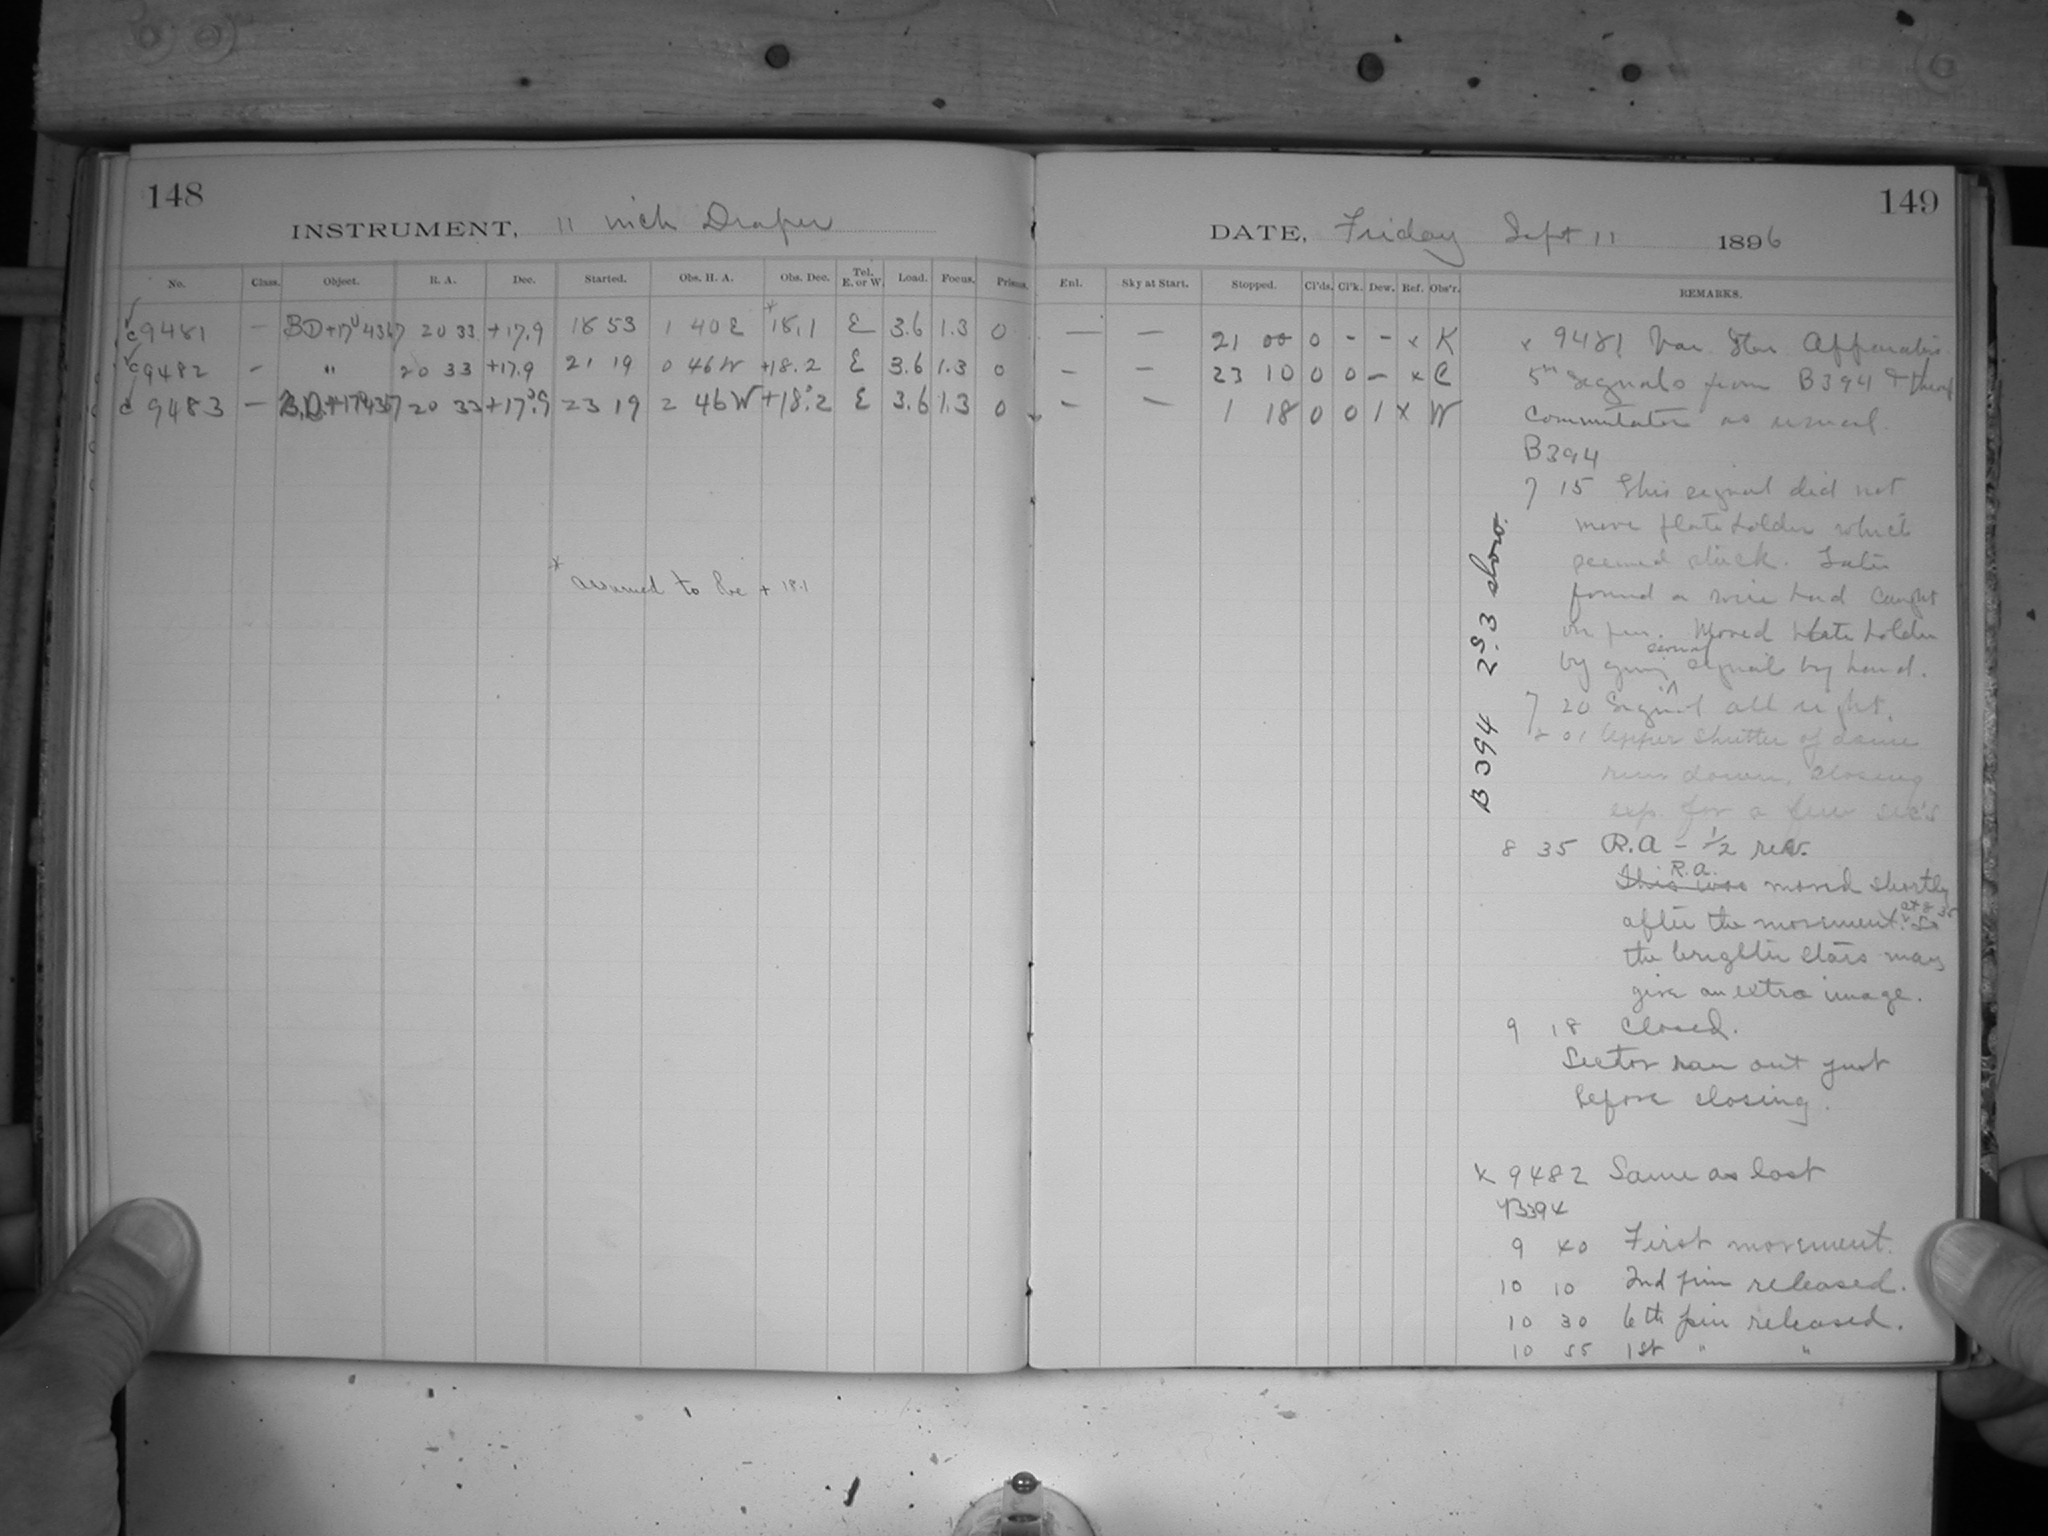 148
INSTRUMENT, 11 inch Draper
No. Class. Object. R. A. Dec. Started. Obs. H. A. Obs. Dec. Tel. E. or W. Load. Focus. Prisms.
✓
c 9481 – BD+17°4367 20 33 +17.9 18 53 1 40 E *18.1 E 3.6 1.3 0
✓
c 9482 – " 20 33 +17.9 21 19 0 46 W +18.2 E 3.6 1.3 0
✓
c 9483 – B.D.+17°4367 20 33 +17°.9 23 19 2 46 W +18°.2 E 3.6 1.3 0
* assumed to be + 18.1
149
DATE, Friday Sept 11 1896
Enl. Sky at Start. Stopped. Cl'ds. Cl'k. Dew. Ref. Obs'r. REMARKS.
— — 21 00 0 - - x K
– – 23 10 0 0 – x C
– – 1 18 0 0 1 x W
x 9481 Var. Star Apparatus
5m signals from B394 &
commutator as usual.
B394
7 15 This signal did not
move plate holder which
seemed stuck. Later
found a wire had caught
on pin. Moved plate holder
by giving several signals by hand.
7 20 Signal all right.
8 01 Upper shutter of dome
run down, closing
exp. for a few sec's
8 35 R.A – 1/2 rev.
This was R.A. moved shortly
after the movement at 8 35 So
the brighter stars may
give an extra image.
9 18 Closed.
Sector ran out just
before closing.
B 394 2s.3 slow.
x 9482 Same as last
B394
9 40 First movement.
10 10 2nd pin released.
10 30 6th pin released.
10 55 1st " "